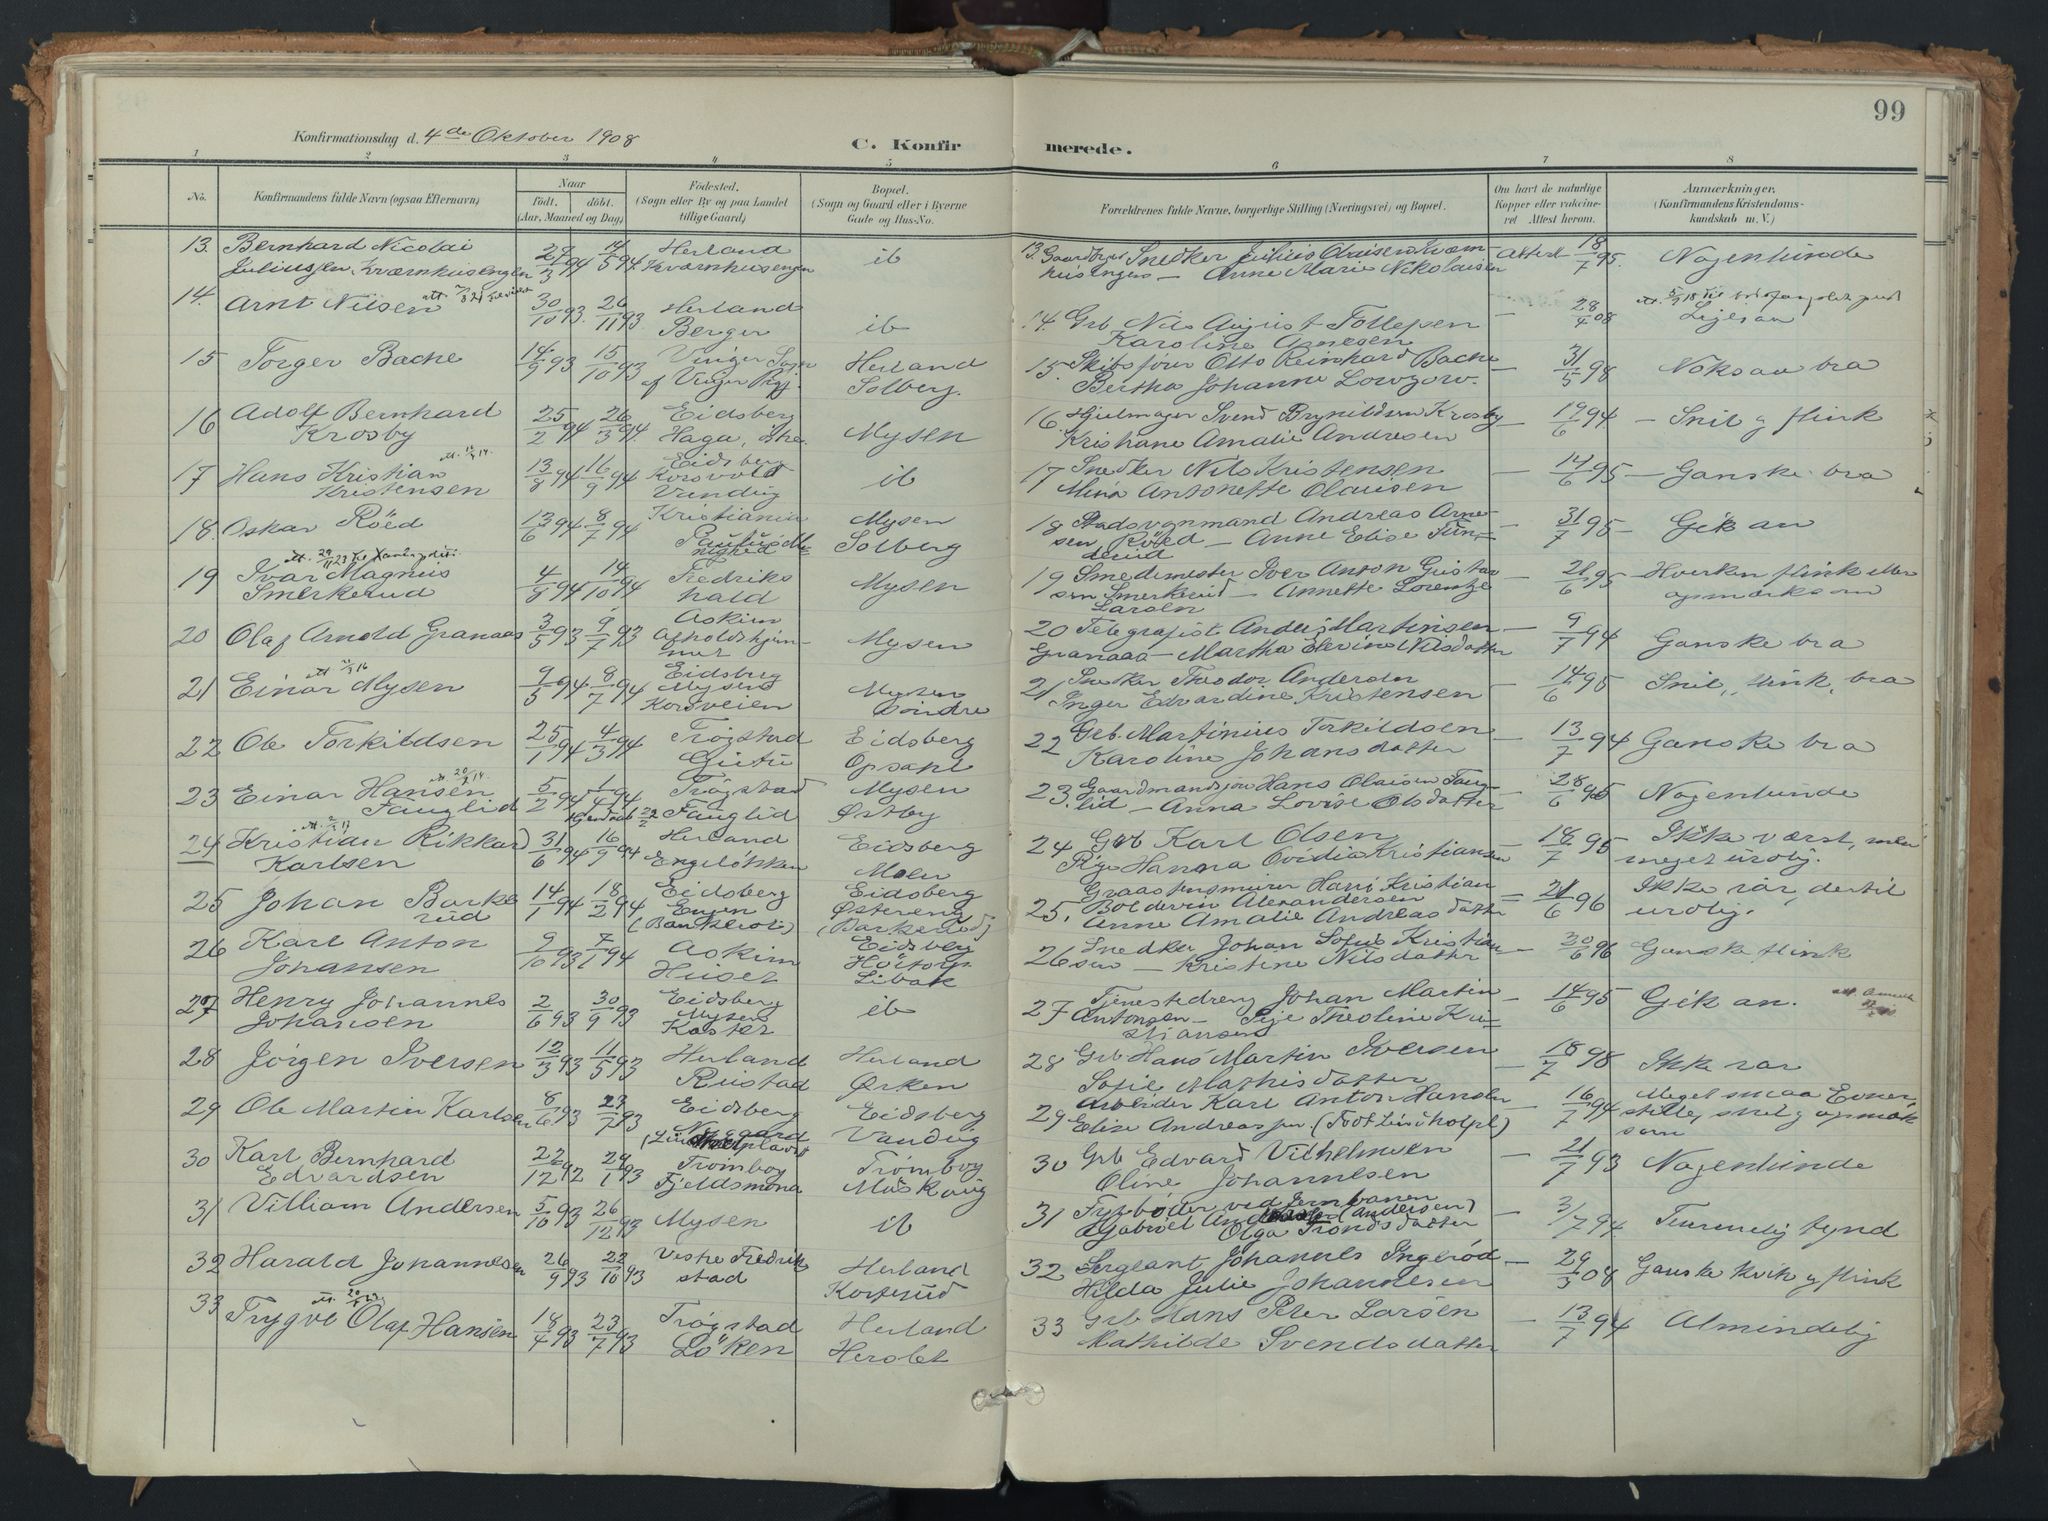 99
Konfirmationsdag d. 4de Oktober 1908
C. Konfirmerede.
1 2 3 4 5 6 7 8
No.
Konfirmandens fulde Navn (ogsaa Efternavn)
Naar
Født. døbt.
(Aar, Maaned og Dag)
Fødested.
(Sogn eller By og paa Landet
tillige Gaard)
Bopæl.
(Sogn og Gaard eller i Byerne
Gade og Hus-No.
Forældrenes fulde Navne, borgerlige Stilling (Næringsvei) og Bopæl.
Om havt de naturlige
Kopper eller vakcine-
ret Attest herom.
Anmærkninger.
(Konfirmandens Kristendoms-
kundskab m. V.)
13. Bernhard Nicolai 14/5 94 Herland ib
Juliussen Kværnhusengen 29/3 94 Kværnhusengen
13. Snedker Julius Olaisen Kværn-
husengen — Anne Marie Nikolaisen Attest 18/7 95. Nogenlunde
14. Arnt Nilsen 30/10 93. 26/11 93 Herland
Berger ib
14. Grb Nils August Tollefsen — 28/4 08
Karoline Arnesen
15 Torger Bache 14/9 93 15/10 93 Vinger Sogn Herland
af Vinger Pgj. Solberg.
15. Skibsfører Otto Reinhard Bache — 31/5 98 Noksaa bra
Bertha Johanne Lowzow.
16 Adolf Bernhard 25/2 94 26/3 94. Eidsberg
Krosby Haga, østre Mysen
16. Hjulmager Svend Brynildsen Krosby — 19/6 94 — Snil og flink
Kristiane Amalie Andresen
17 Hans Kristian 13/8 94 16/9 94 Eidsberg
Kristensen Korsvold ib
Vandug
17 Snedker Nils Kristensen — 14/6 95 — Ganske bra
Mina Antonette Olausen
18. Oskar Röed 13/6 94 8/7 94 Kristiania Mysen
Solberg
18 Stadsvognmand Andreas Arne- — 31/7 95 — Gik an
sen Röed — Anne Elise Tun-
19 Ivar Magnus 4/9 94 14/10 94 Fredriks Mysen
Smerkerud hald
19 Smedemester Iver Anton Gustav — 21/6 95 — Hverken flink eller
sen Smerkerud — Annette Lorentze opmærksom
Larsen
20 Olaf Arnold Granaas 3/5 93 9/7 93 Askim
Mysen
20 Telegrafist Anders Martinsen — 9/7 94 Ganske bra
Granaas — Martha Elevine Nilsdatter
21 Einar Mysen 9/5 94 8/7 94 Eidsberg
Mysens Mysen
Korsveien söndre
21 Snedker Theodor Andersen — 14/6 95 Snil, flink, bra
Inger Edvardine Kristensen
22 Ole Torkildsen 25/1 94 4/3 94 Trögstad Eidsberg
Opsahl
22 Grb. Martinius Torkildsen — 13/7 94 Ganske bra
Karoline Johansdatter
23 Einar Hansen 5/2 94 1/4 94 Trögstad Mysen
Fauglid Fauglid Østby
23. Gaardmandssøn Hans Olausen Faug- — 28/6 95 Nogenlunde
lid — Anna Lovise Olsdatter
24 Kristian Rikkard 31/6 94 16/9 94 Herland Eidsberg
Karlsen Engelökken Moen
24 Grb Karl Olsen — 18/7 95 — Ikke værst, men
Pige Hanna Ovidia Kristiansen meget urolig.
25 Johan Barke 14/1 94 18/2 94 Eidsberg Eidsberg
rud Østereng
(Barkerud)
25. Graastensmurer Hans Kristian
Boldevin Alexandersen — 21/6 96 Ikke rar, dertil
Anne Amalie Andreasdatter urolig.
26 Karl Anton 9/10 93 7/1 94 Askim Eidsberg
Johansen Huser Högtorp
Libak
26 Snedker Johan Sofus Kristian- — 30/6 96 Ganske flink
sen — Kristine Nilsdatter
27 Henry Johannes 2/6 93 30/9 93 Eidsberg ib
Johansen Mysens
Koster
27 Tjenestedreng Johan Martin — 14/6 95 — Gik an.
Antonsen — Pige Theoline Kri-
stiansen
28 Jörgen Iversen 12/3 93 11/5 93 Herland Herland
Rustad Ørken
28 Grb Hans Martin Iversen — 18/7 98 Ikke rar
Sofie Mathisdatter
29 Ole Martin Karlsen 8/6 93 23/7 93 Eidsberg Eidsberg
Vandug
29 Arbeider Karl Anton Hansen 16/7 94 Meget smaa Evner
Elise Andreassen stille, snil og opmærk
som
30 Karl Bernhard 22/12 92 29/1 93 Trömborg Trömborg
Edvardsen Fjeldsmona
30 Grb Edvard Vilhelmsen — 21/7 93 Nogenlunde
Oline Johannesen
31 Villiam Andersen 5/10 93 26/12 93 Mysen ib
31 Fyrböder ved Jernbanen
Gabriel (Andersen) — 3/7 94 Temmelig tynd
Olga Trondsdatter
32 Harald Johannesen 26/9 93 22/10 93 Vestre Fredrik Herland
stad Korterud
32 Sergeant Johannes Ingeröd — 29/3 08 Ganske kvik og flink
Hilda Julie Johannesen
33 Trygve Olaf Hansen 18/4 93 23/7 93 Trögstad Herland
Löken
33 Grb Hans Peter Larsen — 13/7 94 Almindelig
Mathilde Svendsdatter